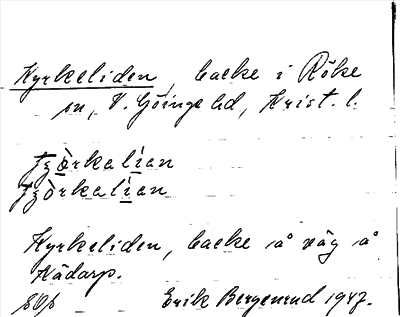 Kyrkeliden, backe i Röke
sn, V. Göinge hd, Krist. l.
tʒòrkalían
tʒòrkalían
Kyrkeliden, backe på väg på
Nådarp.
Erik Bergenrud 1947.